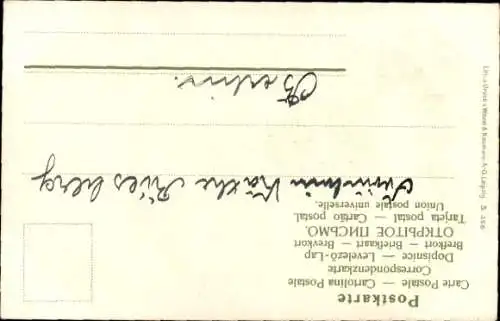 Postkarte
Carte Postale — Cartolina Postale
Correspondenzkarte
Dopisnice — Levelező-Lap
Brefkort — Briefkaart — Brevkort
ОТКРЫТОЕ ПИСЬМО.
Tarjeta postal — Cartão postal.
Union postale universelle.
Fräulein Käthe Riesberg
Berlin.
Wezel & Naumann A.-G. Leipzig. S.